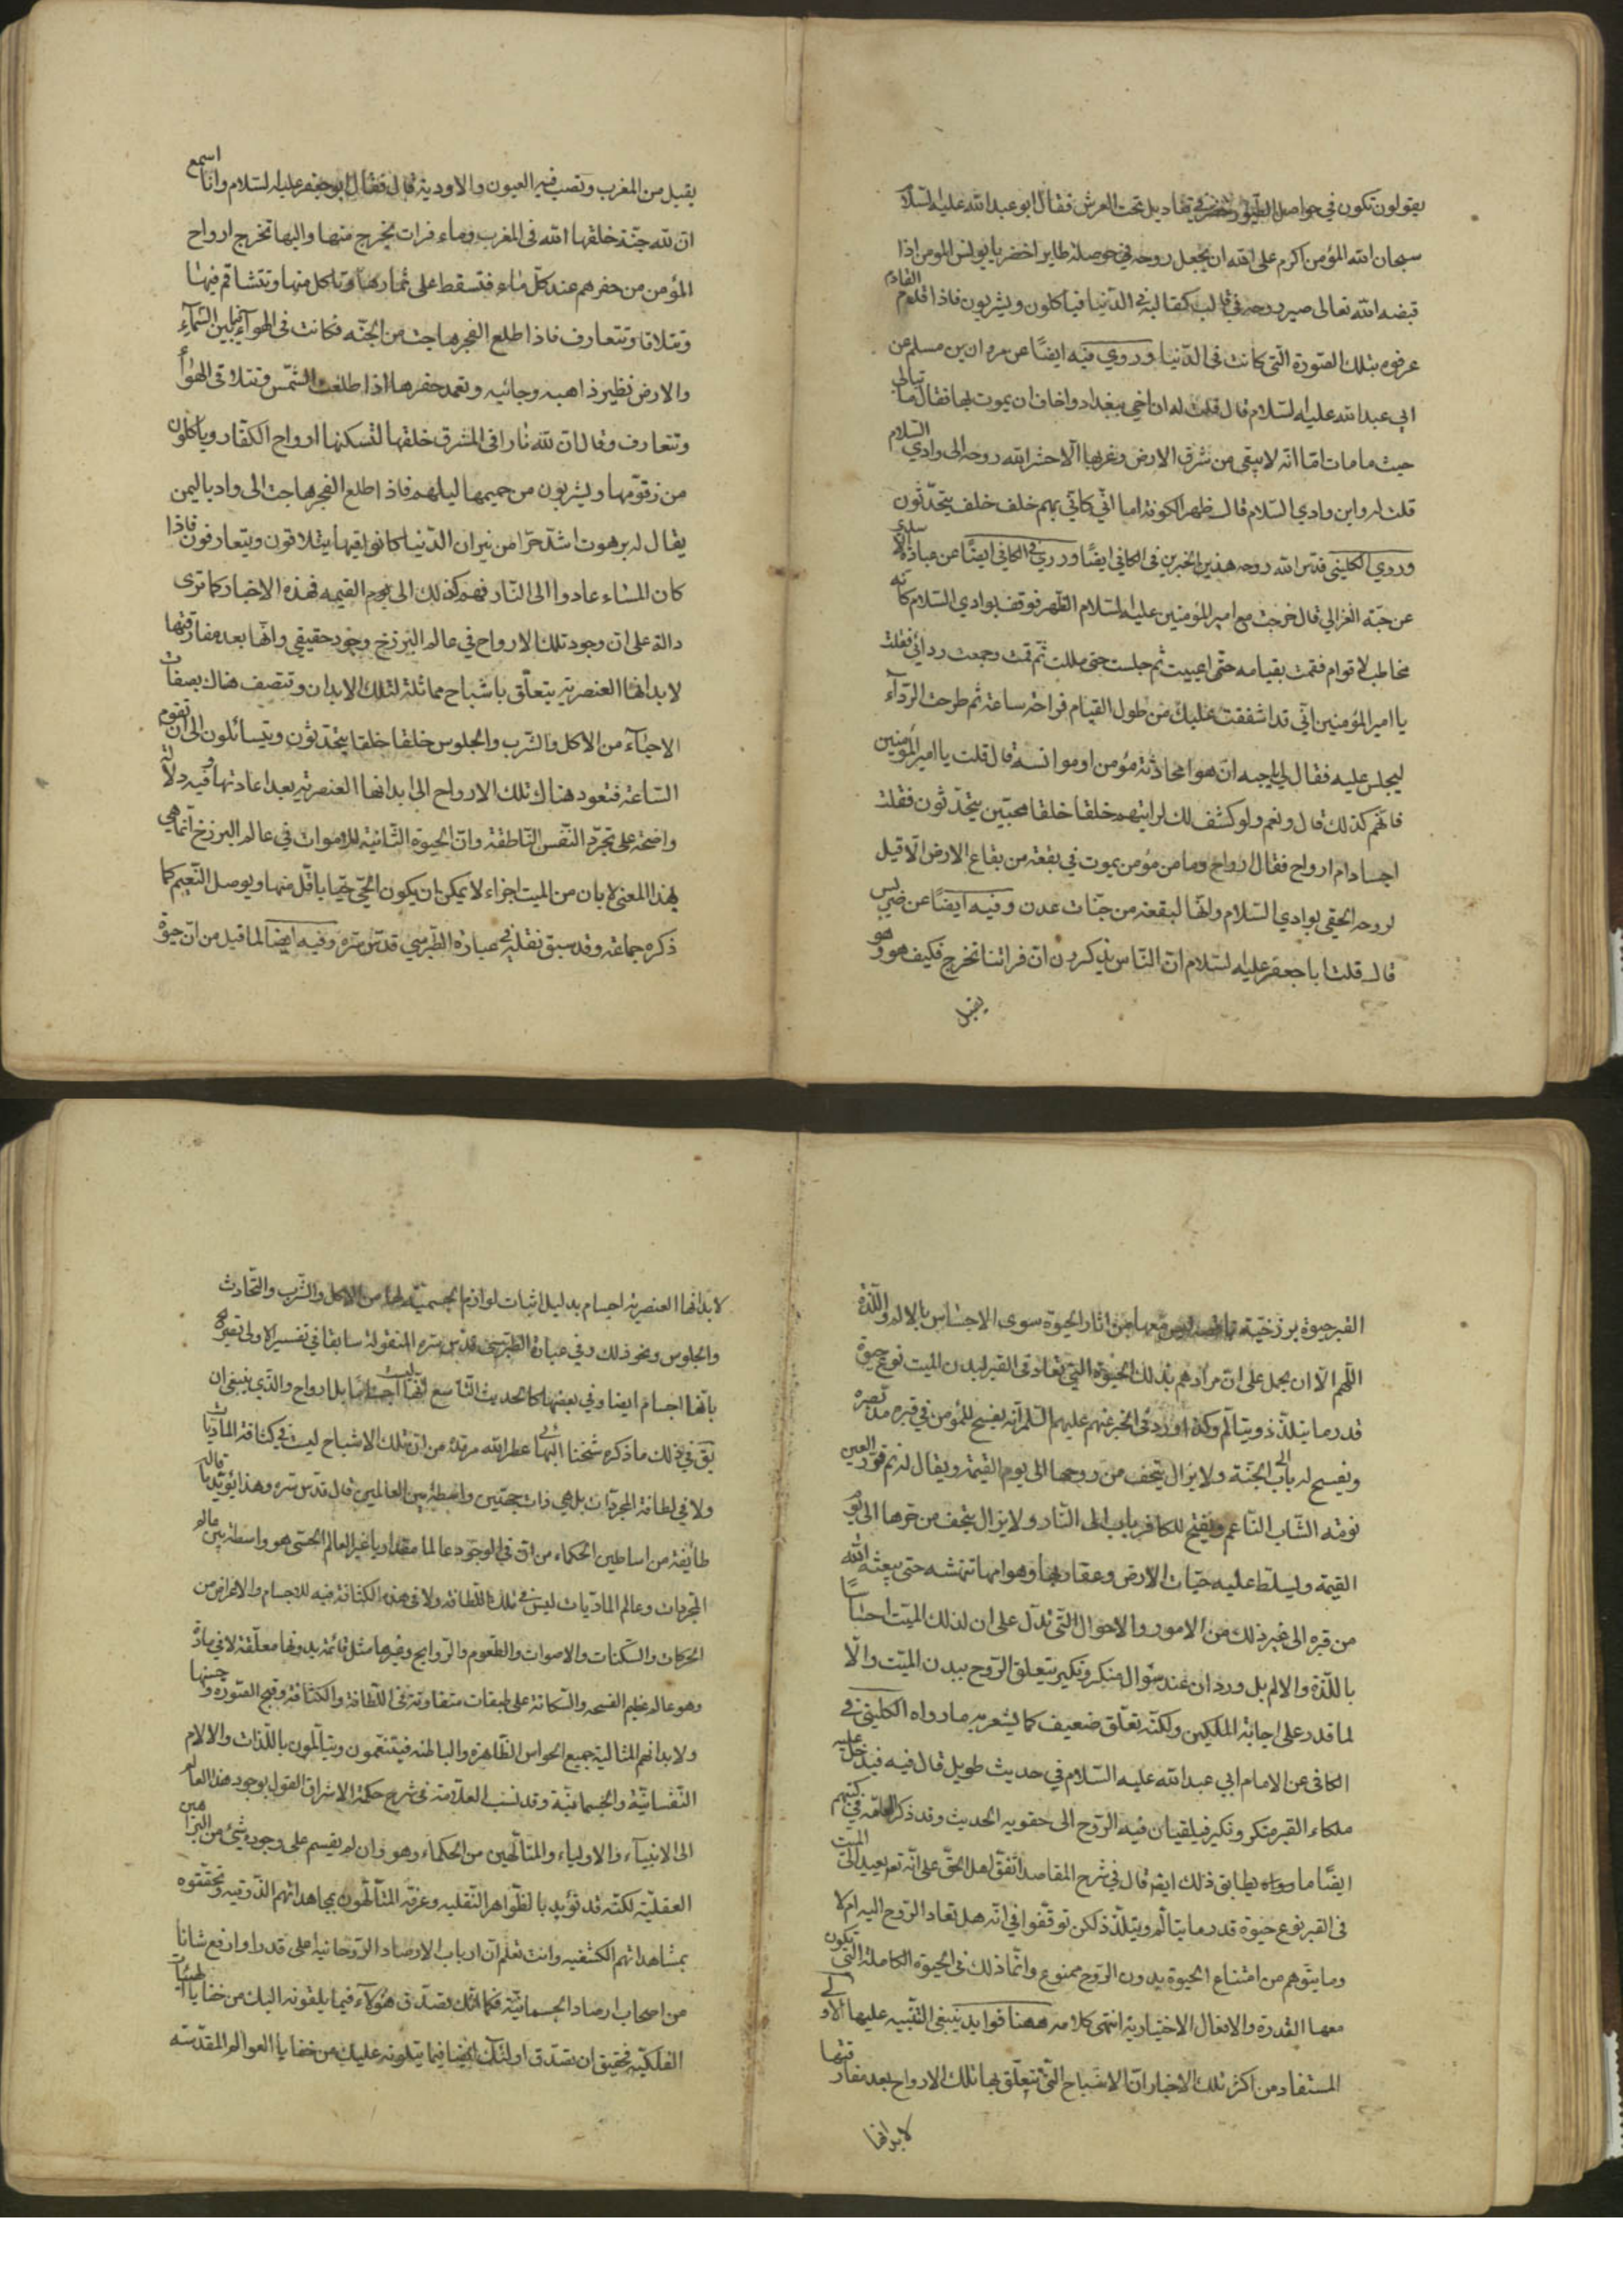 يقولون تكون في حواصل الطيور الخضر في قناديل تحت العرش فقال ابو عبد الله عليه السلام
سبحان الله المؤمن اكرم على الله ان يجعل روحه في حوصلة طاير اخضر يا يونس المؤمن اذا
قبضه الله تعالى صير روحه في قالب كقالبه في الدنيا فياكلون ويشربون فاذا قدم القادم
عرفوه بتلك الصورة التي كانت في الدنيا وروي فيه ايضًا عن مروان بن مسلم عن
ابي عبد الله عليه السلام قال قلت له ان اخي ببغداد واخاف ان يموت بها فقال ما تبالي
حيث ما مات اما انه لا يبقى من شرق الارض وغربها الا حشر الله روحه الى وادي السلام
قلت له واين وادي السلام قال ظهر الكوفة اما اني كاني بهم خلف خلف يتحدثون
وروي الكليني قدس الله روحه هذين الخبرين في الكافي ايضًا وروي في الكافي ايضًا عن عباذة الاسدي
عن حبة العراني قال خرجت مع امير المؤمنين عليه السلام الظهر فوقف بوادي السلام كانه
مخاطب لاقوام فقمت بقيامه حتى اعييت ثم جلست حتى مللت ثم قمت وجمعت ردائي فقلت
يا امير المؤمنين اني قد اشفقت عليك من طول القيام فراحة ساعة ثم طرحت الرداء
ليجلس عليه فقال لي يا حبه ان هو الا محادثة مؤمن او موانسة قال قلت يا امير المؤمنين
فانهم كذلك قال ونعم ولو كشف لك لرايتهم خلقا خلقا محبين يتحدثون فقلت
اجسادام ارواح فقال ارواح وما من مؤمن يموت في بقعة من بقاع الارض الا قيل
لروحه الحقي بوادي السلام وانها لبقعة من جنات عدن وفيه ايضًا عن ضريس
قال قلت ابا جعفر عليه السلام ان الناس يذكرون ان فراتنا تخرج فكيف هو وهو
يقبل
يقبل من المغرب وتصب فيه العيون والاودية قال فقال ابو جعفر عليه السلام وانا اسمع
ان لله جنة خلقها الله في المغرب وماء فرات يخرج منها واليها تخرج ارواح
المؤمن من حفرهم عند كل مساء فتسقط على ثمارها وتاكل منها وتتشاقم فيها
وتتلاقا وتتعارف فاذا طلع الفجر هاجت من الجنه فكانت في الهوآء فيما بين السمآء
والارض نظير ذاهبه وجائيه وتعهد حفرها اذا طلعت الشمس وتتلاقى الهوآ
وتتعارف وقال ان لله نارا في المشرق خلقها لتسكنها ارواح الكفار وياكلون
من زقومها ويشربون من حميمها ليلهم فاذا طلع الفجر هاجت الى واد باليمن
يقال له برهوت اشد حرا من نيران الدنيا كانوا فيها يتلاقون ويتعارفون فاذا
كان المساء عادوا الى النار فهم كذلك الى يوم القيمه فهذه الاخبار كما ترى
دالة على ان وجود تلك الارواح في عالم البرزخ وجود حقيقي وانها بعد مفارقتها
لابدانها العنصرية يتعلق باشباح مماثلة لتلك الابدان وتتصف هناك بصفات
الاحيآء من الاكل والشرب والجلوس خلقا خلقا يتحدثون ويتسائلون الى ان تقوم
الساعة فتعود هناك تلك الارواح الى ابدانها العنصرية بعد اعادتها وفيه دلالة
واضحة على تجرد النفس الناطقة وان الحيوة الثانية للاموات في عالم البرزخ انما هي
بهذا المعنى لا بان من الميت اجزاء لا يمكن ان يكون الحي حيا باقل منها ويوصل النعيم كما
ذكره جماعة وقد سبق نقله في عبارة الطبرسي قدس سره وفيه ايضا لما قيل من ان حيوة
القبر حيوة برزخية معها من اثار الحيوة سوى الاحساس بالالم واللذة
اللهم الا ان يحمل على ان مرادهم بذلك الحيوة التي تعاد في القبر لبدن الميت نوع حيوة
قدر ما يتلذذ ويتالم وكذا ورد في الخبر عنهم عليهم السلم انه يفسح للمؤمن في قبره مد بصره
ويفتح له باب الى الجنة ولا يزال يتحف من روحها الى يوم القيمة ويقال له نم قرير العين
نومة الشاب الناعم ويفتح للكافر باب الى النار ولا يزال يتحف من حرها الى يوم
القيمة ويسلط عليه حيات الارض وعقاربها وهوامها تنهشه حتى يبعثه الله
من قبره الى غير ذلك من الامور والاحوال التي تدل على ان لذلك الميت احساسًا
باللذة والالم بل ورد ان عند سؤال منكر ونكير يتعلق الروح ببدن الميت والا
لما قدر على اجابة الملكين ولكنه تعلق ضعيف كما يشعر به ما رواه الكليني في
الكافي عن الامام ابي عبد الله عليه السلام في حديث طويل قال فيه فيدخل عليه
ملكاء القبر منكر ونكير فيلقيان فيه الروح الى حقويه الحديث وقد ذكر العامة في كتبهم
ايضًا ما يطابق ذلك ايضا قال في شرح المقاصد اتفق اهل الحق على انه تع يعيد الى الميت
في القبر نوع حيوة قدر ما يتالم ويتلذذ لكن توقفوا في انه هل تعاد الروح اليه ام لا
وما يتوهم من امتناع الحيوة بدون الروح ممنوع وانما ذلك في الحيوة الكاملة التي تكون
معها القدرة والافعال الاختيارية انتهى كلامه ههنا فوايد ينبغي التنبيه عليها الاولى
المستفاد من اكثر تلك الاخبار ان الاشباح التي تتعلق بها تلك الارواح بعد مفارقتها
لابدانها
لابدانها العنصرية اجسام بدليل اثبات لوازم الجسمية لها من الاكل والشرب والتحادث
والجلوس ونحو ذلك وفي عبارة الطبرسي قدس سره المنقولة سابقا في تفسير الاولى تصريح
بانها اجسام ايضا وفي بعضها كالحديث التاسع انها ليست اجساما بل ارواح والذي ينبغي ان
يق في ذلك ما ذكره شيخنا البهائي عطر الله مرقده من ان تلك الاشباح ليست في كثافة الماديات
ولا في لطافة المجردات بل هي ذات جهتين واسطة بين العالمين قال قدس سره وهذا يؤيد ما قاله
طائفة من اساطين الحكماء من ان في الوجود عالما مقداريا غير العالم الحسي هو واسطة بين عالم
المجردات وعالم الماديات ليس في تلك اللطافة ولا في هذه الكثافة فيه للاجسام والاعراض من
الحركات والسكنات والاصوات والطعوم والروايح وغيرها مثل قائمة بذواتها معلقة لا في مادة
وهو عالم عظيم الفسحة والسكانه على طبقات متفاوتة في اللطافة والكثافة وقبح الصورة وحسنها
ولابدانهم المثالية جميع الحواس الظاهرة والباطنه فيتنعمون ويتالمون باللذات والالام
النفسانية والجسمانية وقد نسب العلامة في شرح حكمة الاشراق القول بوجود هذا العالم
الى الانبيآء والاولياء والمتالهين من الحكماء وهو وان لم يقسم على وجوده شيئ من البراهين
العقلية لكنه قد تؤيد بالظواهر النقليه وعرفه المتالهون بمجاهداتهم الذوقيه وتحققوه
بمشاهداتهم الكشفيه وانت تعلم ان ارباب الارصاد الروحانية اعلى قدرا وارفع شانا
من اصحاب ارصاد الجسمانية فكما انك تصدق هؤلآء فيما يلقونه اليك من خفايا الهيئات
الفلكية فحقيق ان تصدق اولئك ايضا فيما يتلونه عليك من خفايا العوالم المقدسه